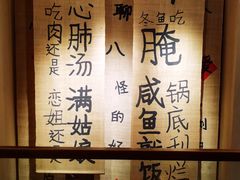 冬鱼吃
锅底刮烂
腌咸鱼就饭
聊八怪的好
心肺汤满姑娘
吃肉还是恋姐还是